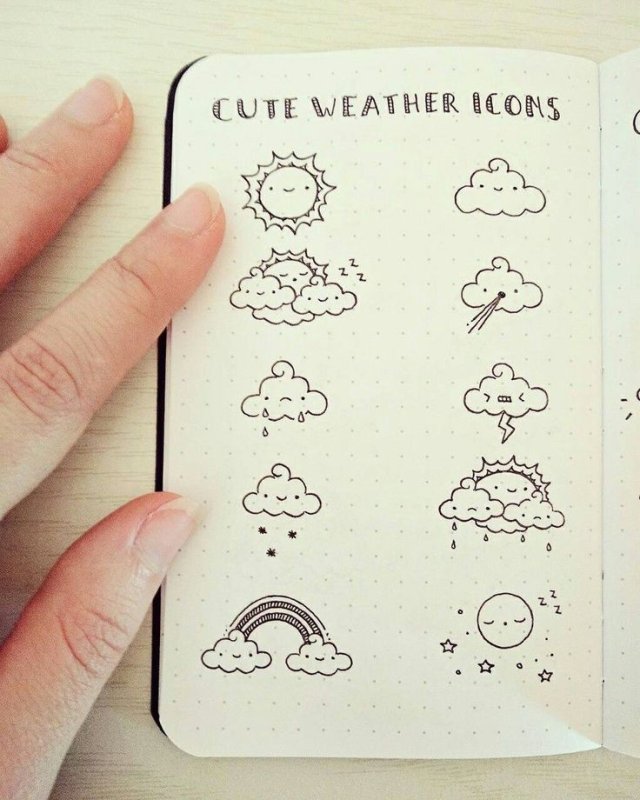 CUTE WEATHER ICONS
z z z z
z z z